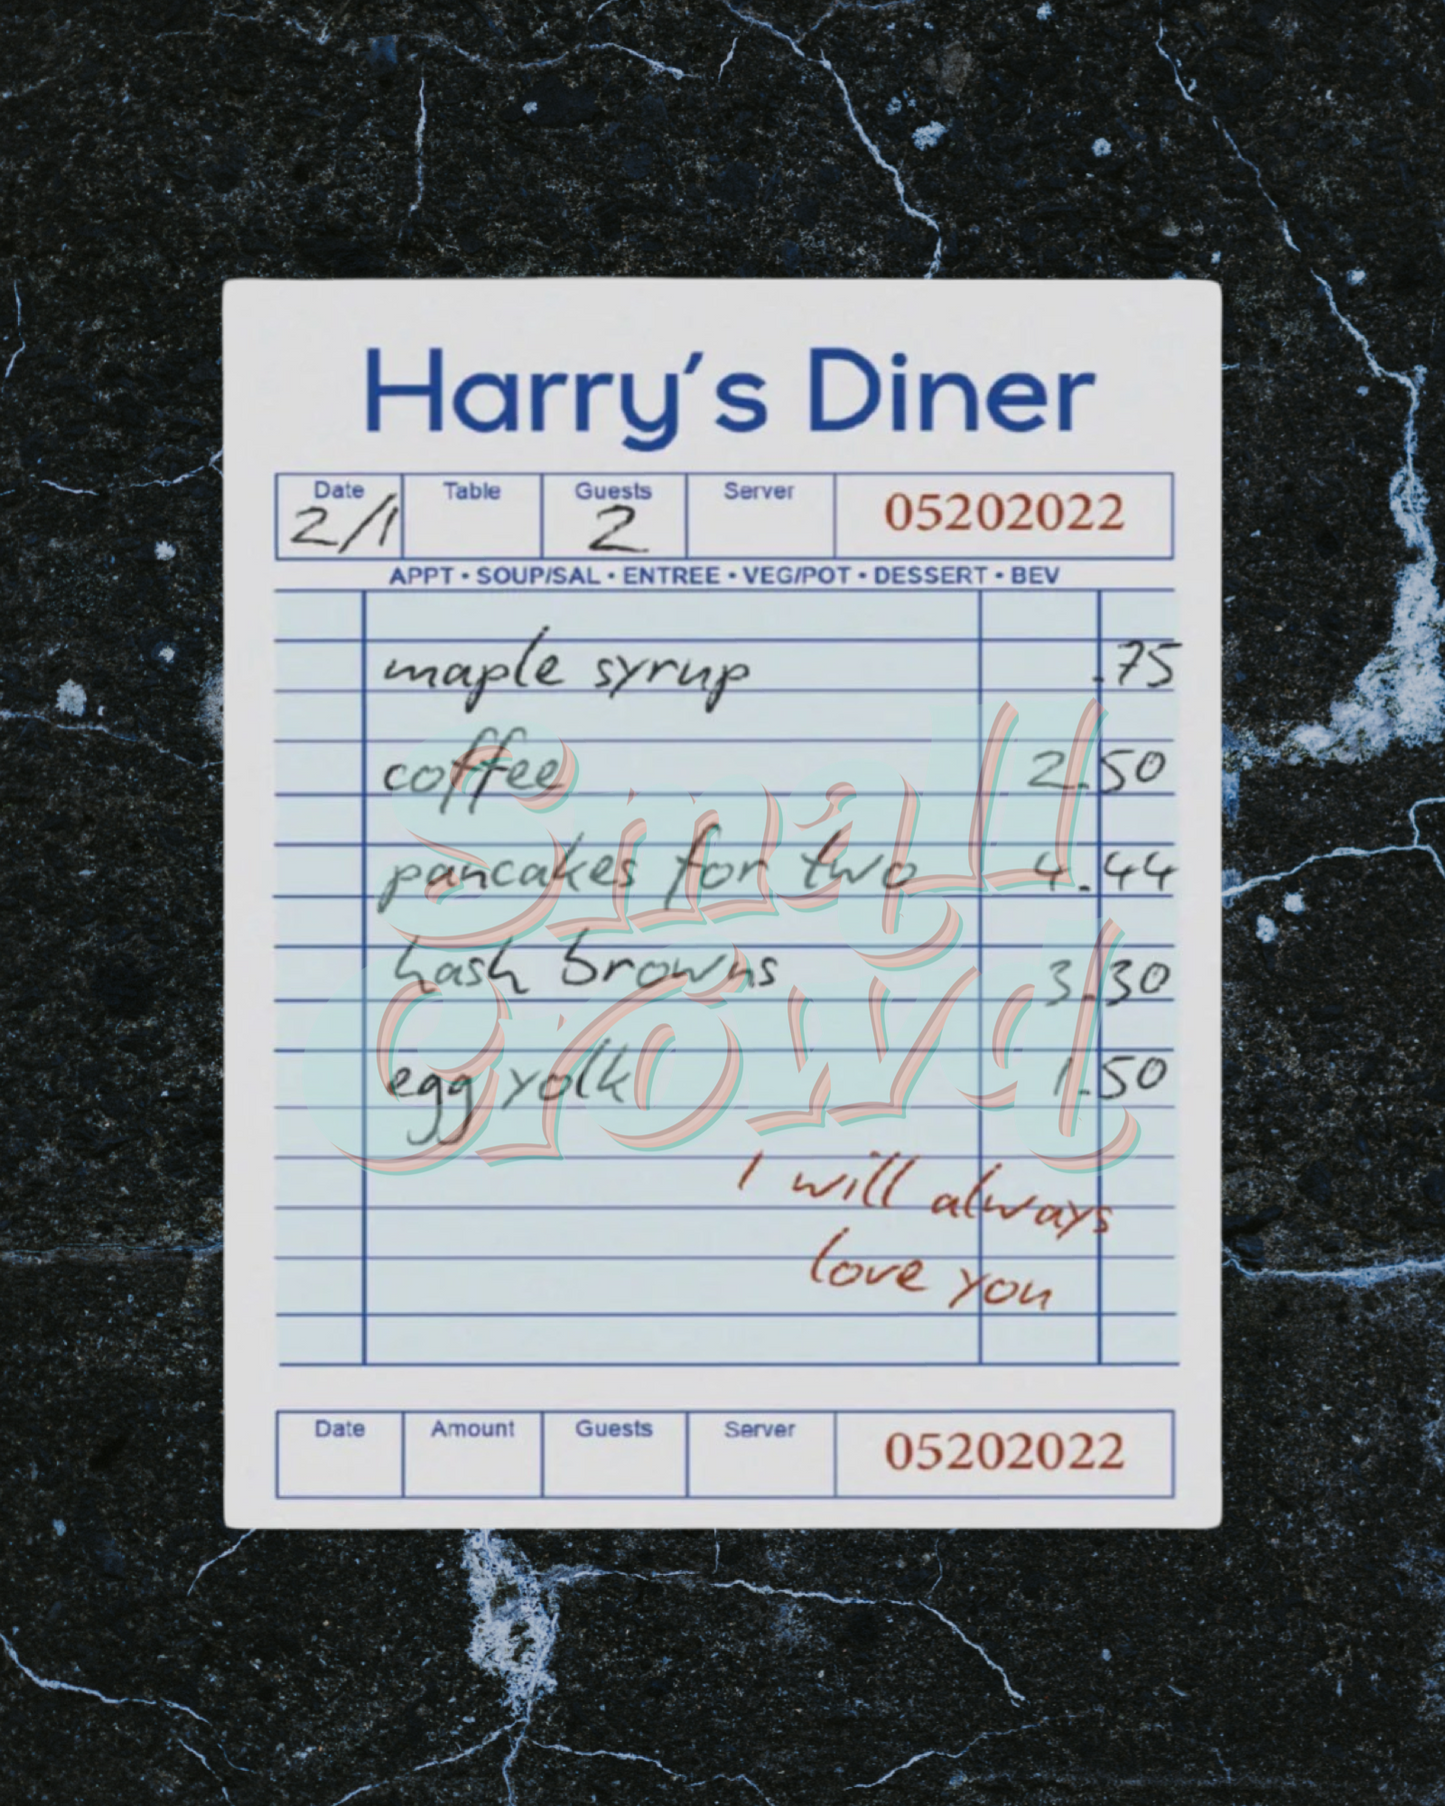 Harry's Diner
Date Table Guests Server 05202022
2/1 2
APPT • SOUP/SAL • ENTREE • VEG/POT • DESSERT • BEV
maple syrup .75
coffee 2.50
pancakes for two 4.44
hash browns 3.30
egg yolk 1.50
Small
Crowd
I will always
love you
Date Amount Guests Server 05202022